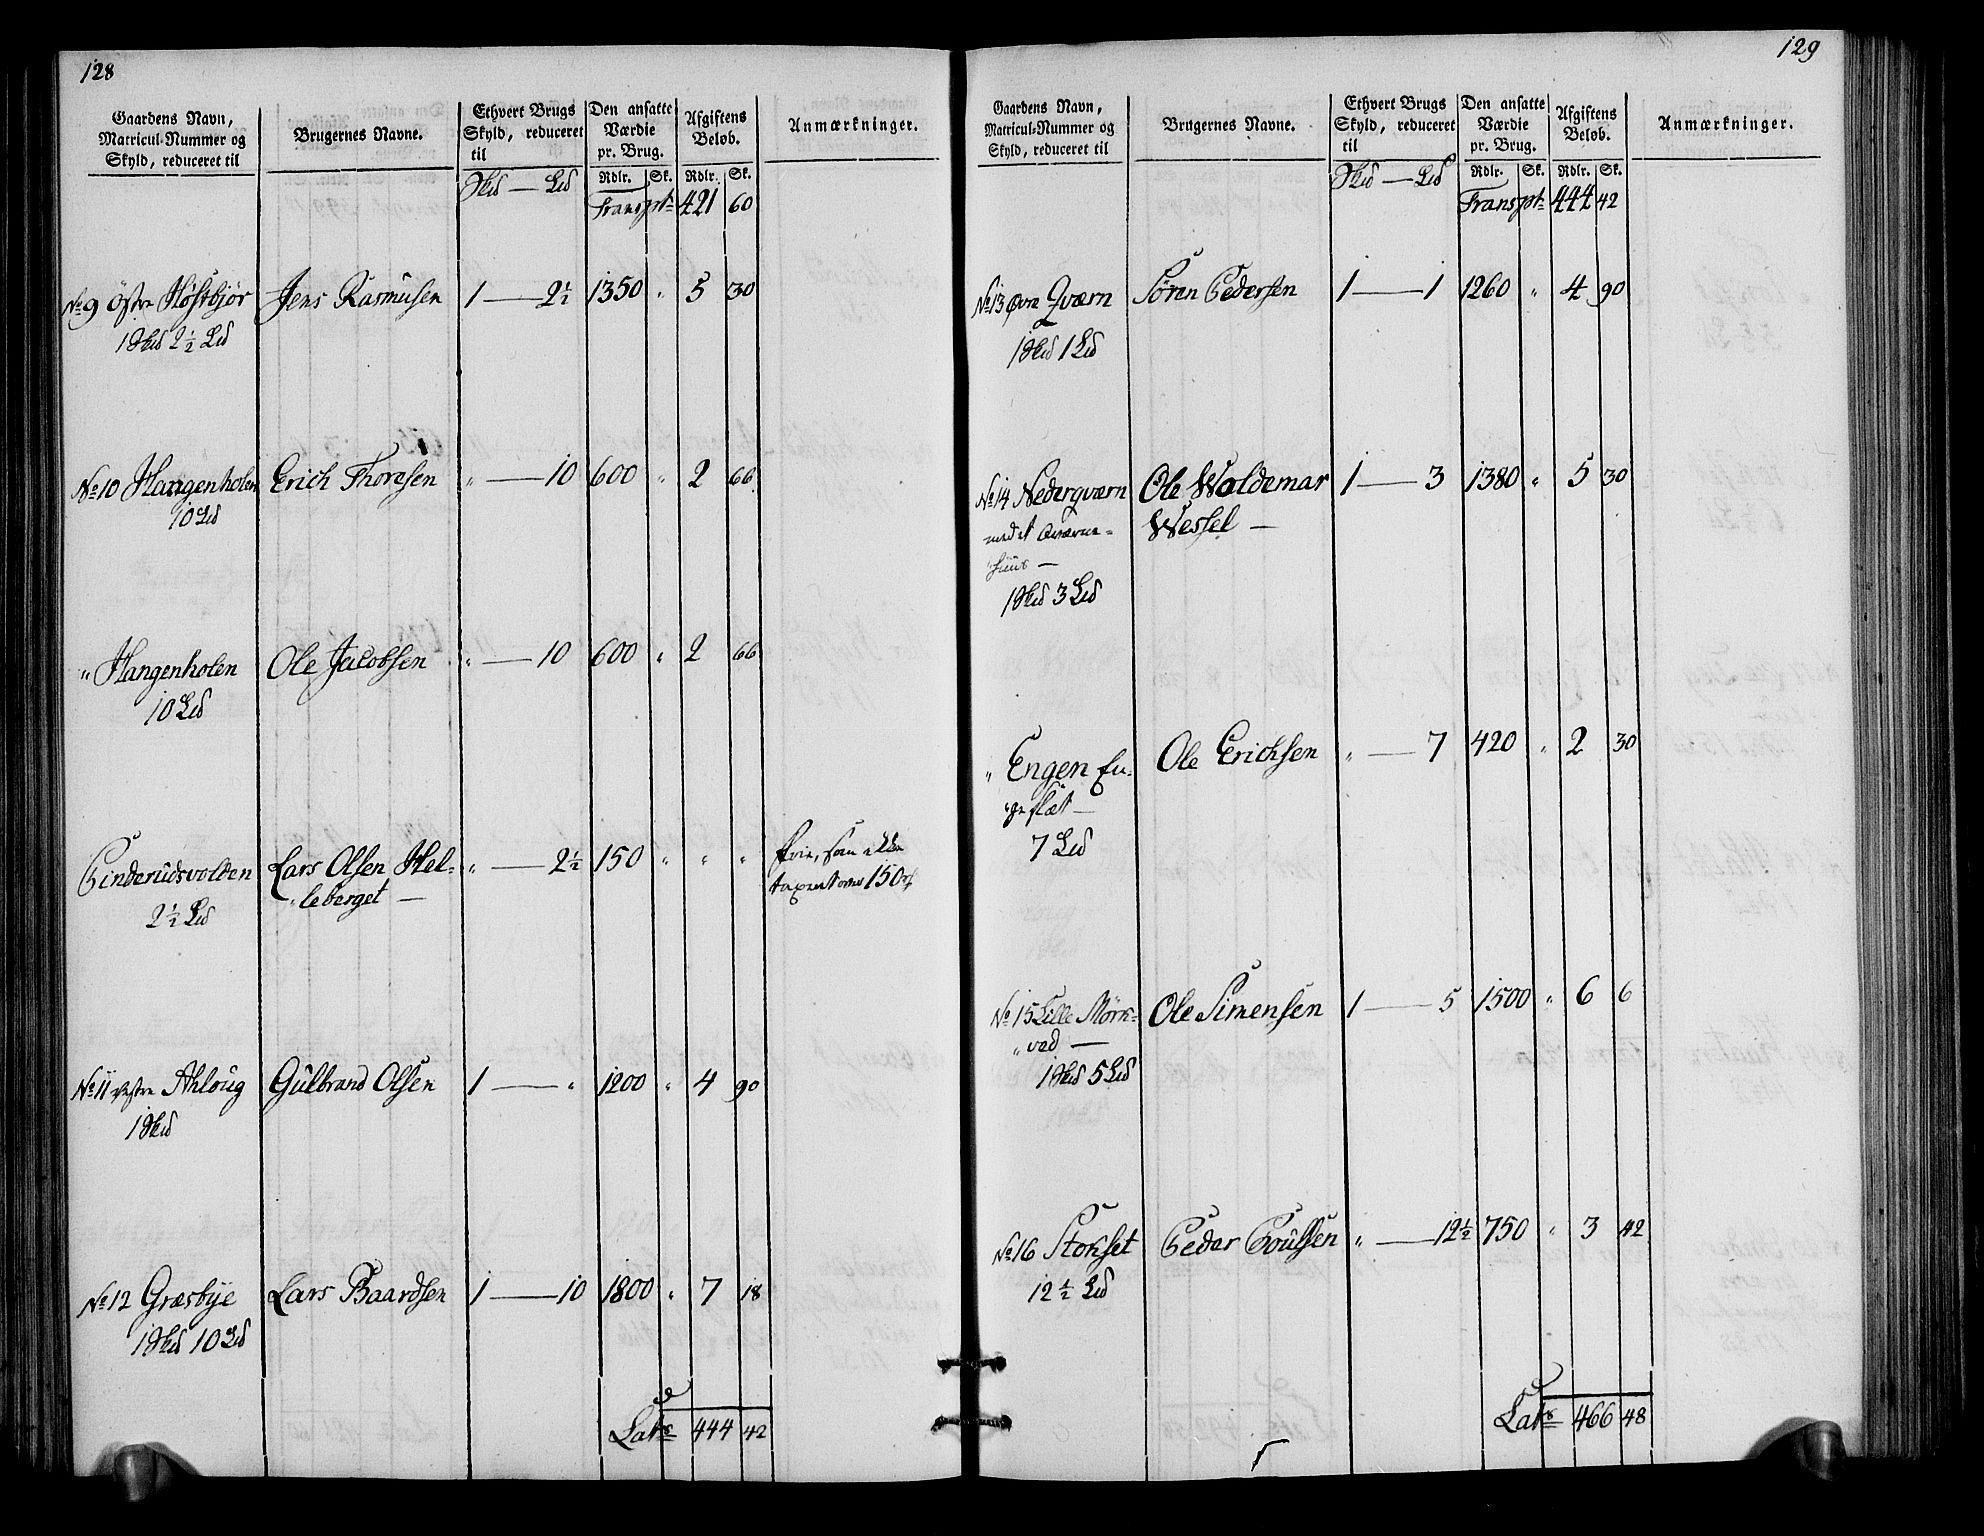 128
Gaardens Navn,
Matricul-Nummer og
Skyld, reduceret til
Brugernes Navne.
Ethvert Brugs
Skyld, reduceret
til
Den ansatte
Værdie
pr. Brug.
Afgiftens
Beløb.
Anmærkninger.
Hud — Lid
Rdlr. Sk. Rdlr. Sk.
Transpt 421 60
No 9 Østre Høstbjør Jens Rasmusen 1 — 2½ 1350 " 5 30
1 Hud 2½ Lid
No 10 Hangenholen Erich Thoresen " — 10 600 " 2 66
10 Lid
" Hangenholen Ole Jacobsen " — 10 600 " 2 66
10 Lid
Pinderudsvolden Lars Olsen Hel- " — 2½ 150 " " "
leberget —
2½ Lid
frie, som
150
No 11 vestre Ahloug Gulbrand Olsen 1 — " 1200 " 4 90
1 Hud
No 12 Græsbye Lars Baardsen 1 — 10 1800 " 7 18
1 Hud 10 Lid
Lats 444 42
129
Gaardens Navn,
Matricul-Nummer og
Skyld, reduceret til
Brugernes Navne.
Ethvert Brugs
Skyld, reduceret
til
Den ansatte
Værdie
pr. Brug.
Afgiftens
Beløb.
Anmærkninger.
Hud — Lid
Rdlr. Sk. Rdlr. Sk.
Transpt 444 42
No 13 Øvre Qværn Søren Pedersen 1 — 1 1260 " 4 90
1 Hud 1 Lid
No 14 Nederqværn Ole Waldemar 1 — 3 1380 " 5 30
med et Qværne-
huus —
Wessel —
1 Hud 3 Lid
" Engen En- Ole Erichsen " — 7 420 " 2 30
geslæt —
7 Lid
No 15 Lille Mørk- Ole Simensen 1 — 5 1500 " 6 6
vad —
1 Hud 5 Lid
No 16 Stokset Peder Poulsen " — 12½ 750 " 3 42
12½ Lid
Lats 466 48